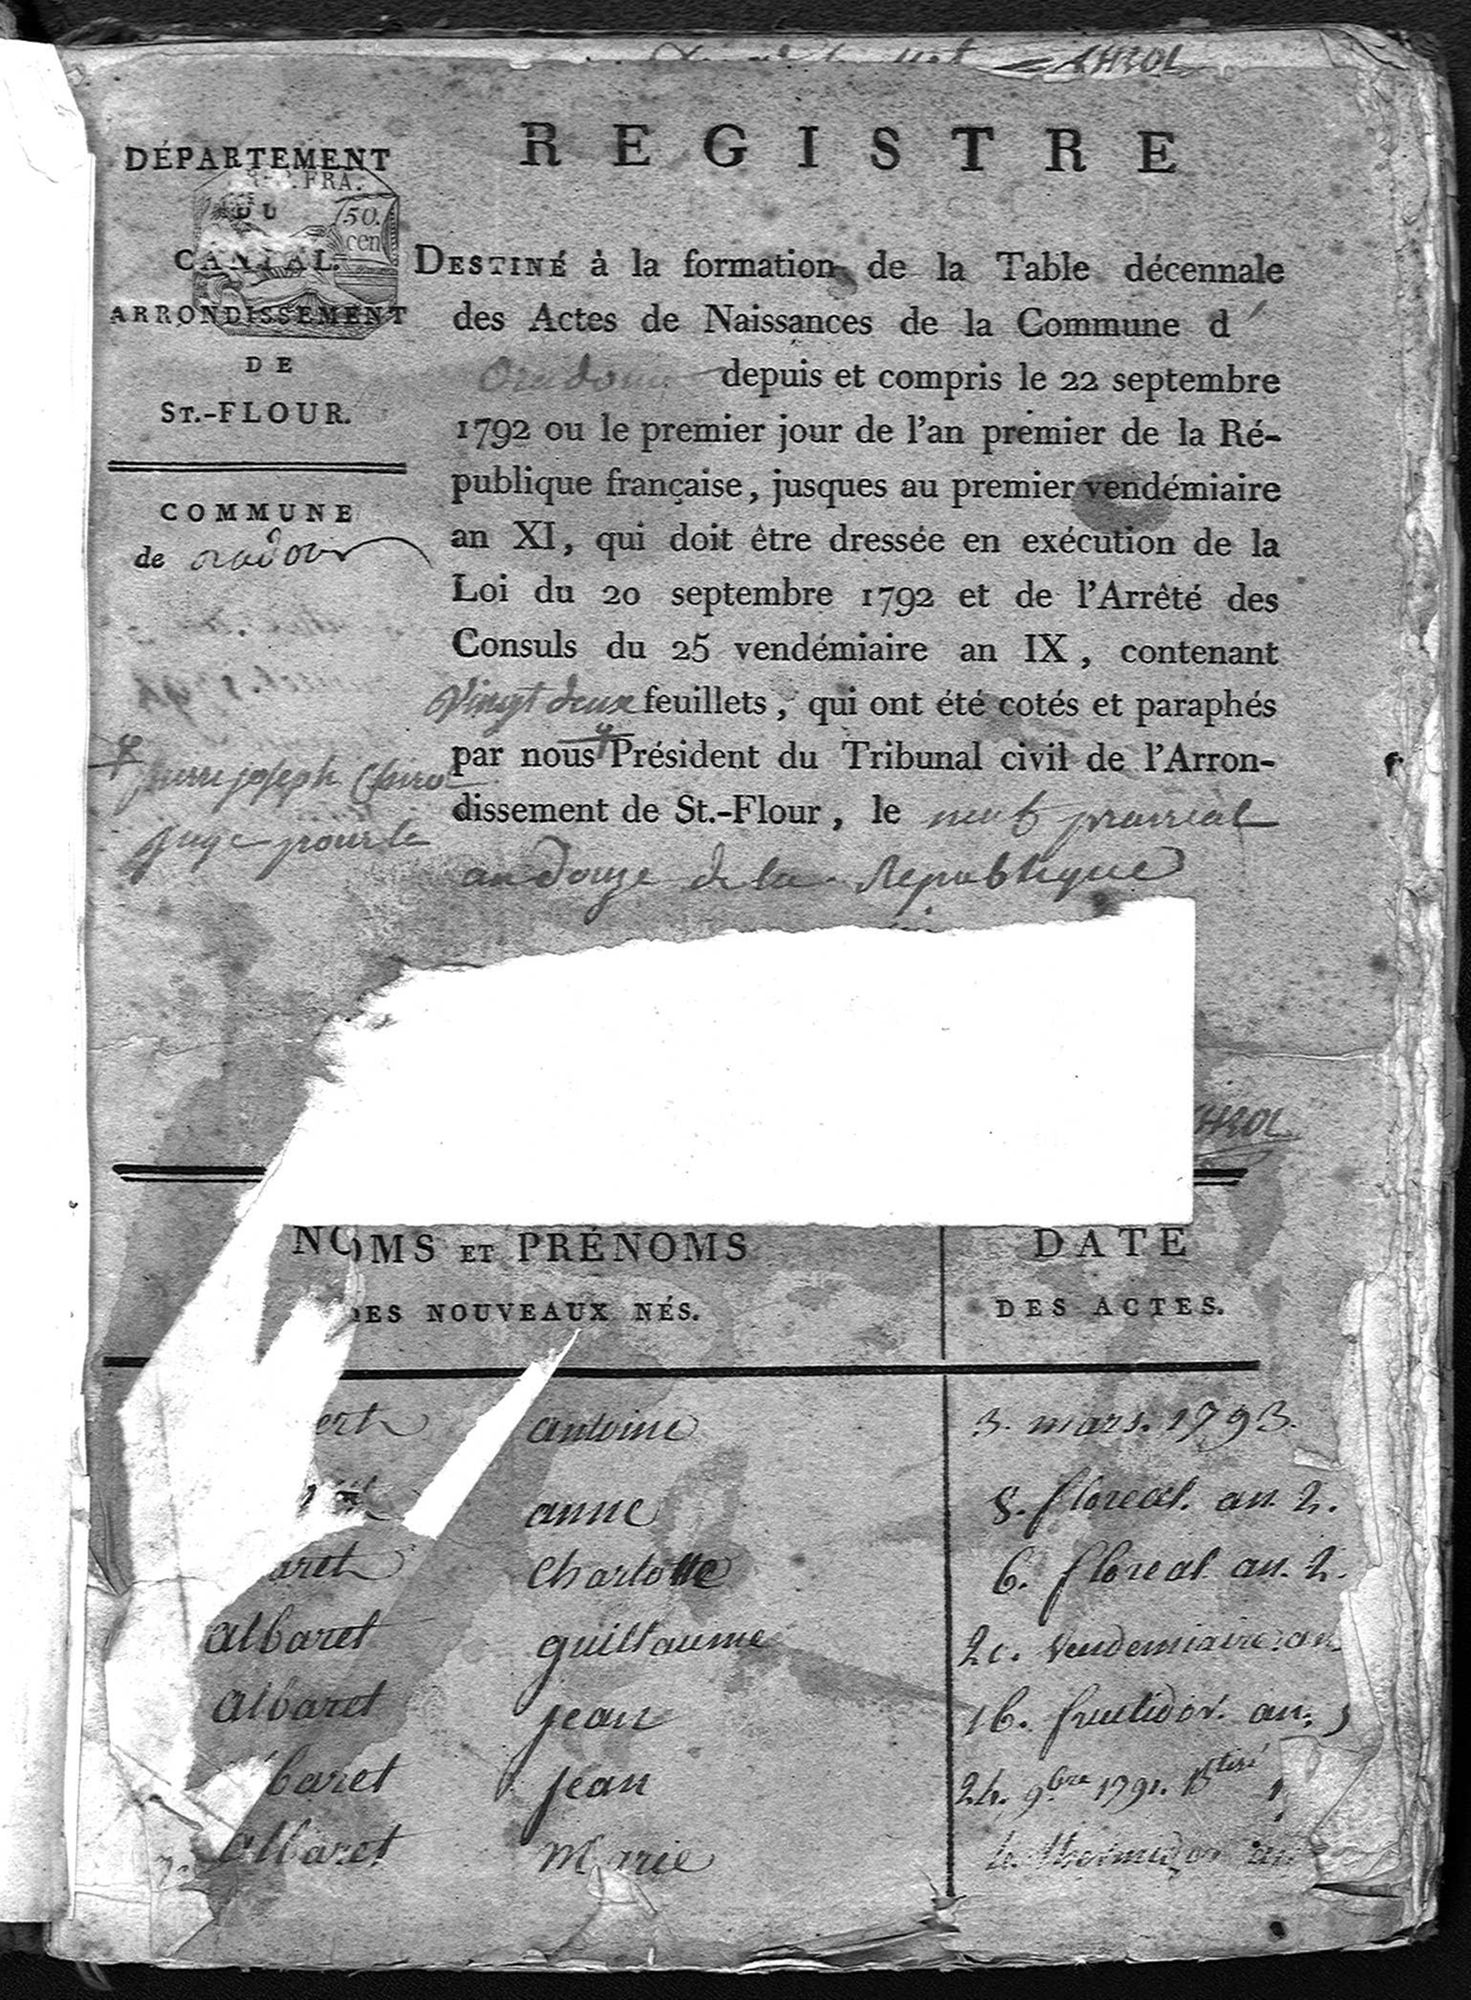 CHROL
REGISTRE
DÉPARTEMENT
DU
CANTAL.
ARRONDISSEMENT
DE
ST.-FLOUR.
COMMUNE
de oradour
FRA.
50.
cen
DESTINÉ à la formation de la Table décennale
des Actes de Naissances de la Commune d'
Oradour depuis et compris le 22 septembre
1792 ou le premier jour de l'an premier de la Ré-
publique française, jusques au premier vendémiaire
an XI, qui doit être dressée en exécution de la
Loi du 20 septembre 1792 et de l'Arrêté des
Consuls du 25 vendémiaire an IX, contenant
Vingt deux feuillets, qui ont été cotés et paraphés
par nous Président du Tribunal civil de l'Arron-
dissement de St.-Flour, le neuf prairial
an douze de la Republique
pierre joseph Chirol
juge pour le
CHROL
NOMS ET PRÉNOMS DATE
DES NOUVEAUX NÉS. DES ACTES.
ert antoine 3. mars. 1793.
anne 8. floreal. an. 2.
aret Charlotte 6. floreal. an. 2.
albaret guillaume vendemiaire. an.
albaret jean 16. fructidor. an. 3
baret jean 24. 9bre 1791.
albaret Marie thermidor an